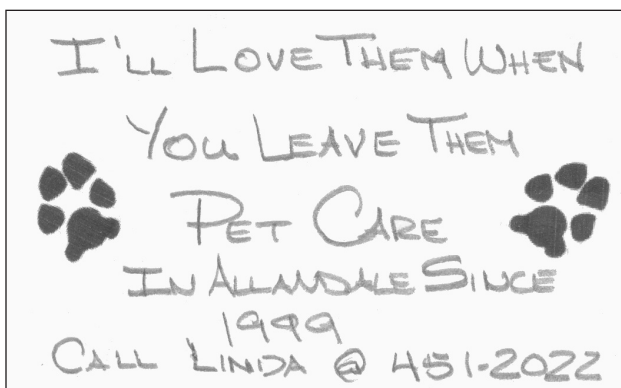 I'LL LOVE THEM WHEN
YOU LEAVE THEM
PET CARE
IN ALLANDALE SINCE
1999
CALL LINDA @ 451-2022